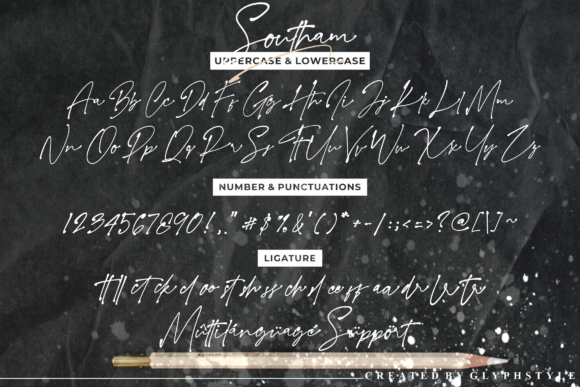 Southam
UPPERCASE & LOWERCASE
Aa Bb Cc Dd Ff Gg Hh Ii Jj Kk Ll Mm
Nn Oo Pp Qq Rr Ss Tt Uu Vv Ww Xx Yy Zz
NUMBER & PUNCTUATIONS
1234567890!,.."#$%&'()*+-/:;<=>?@[\]~
LIGATURE
tt ll et ck cl oo st sh ss ch sl ee ff aa dr
Mültilángüage Süppört
CREATED BY GLYPHSTYLE